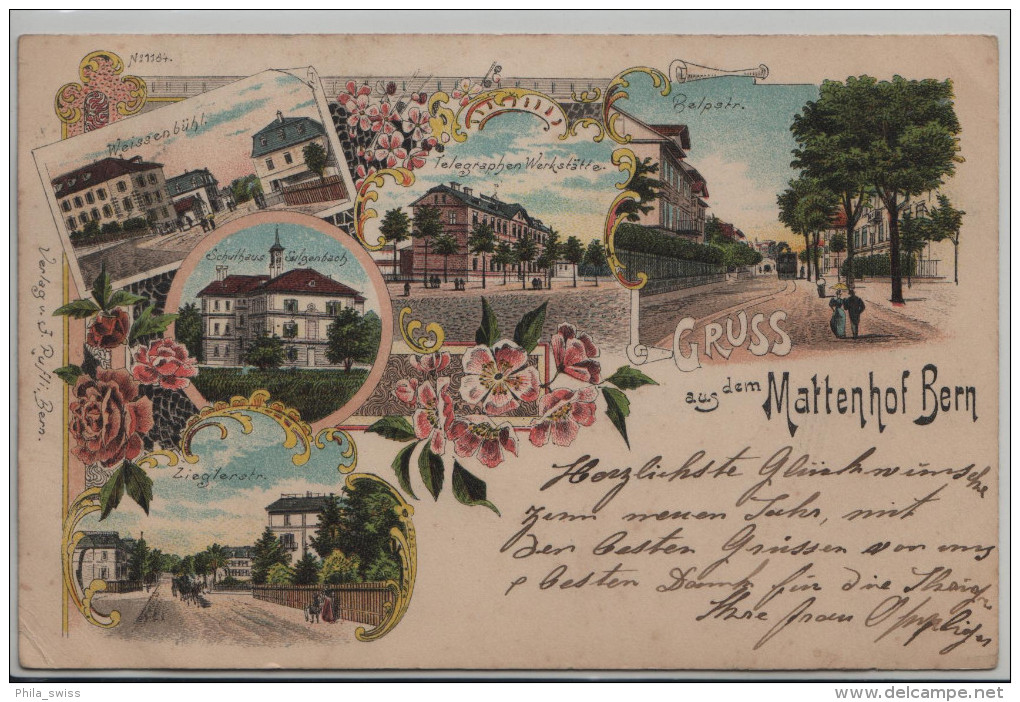 No 1184.
Weissenbühl.
Telegraphen Werkstätte.
Belpstr.
Schulhaus Sulgenbach
Zieglerstr.
Verlag v. J. Bern.
GRUSS
aus dem Mattenhof Bern
Herzlichste Glückwünsche
zum neuen Jahr, mit
den besten Grüssen von uns
besten Dank für die
Ihre frau Oppliger
Phila_swiss
www.delcampe.net